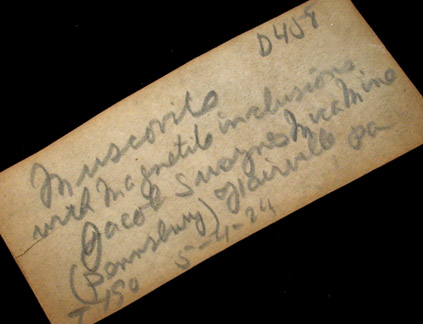 D459
Muscovite
with Magnetite inclusions
Jacob Swaynes Mica Mine
(Pennsbury) Fairville, Pa
T 190 5-4-24